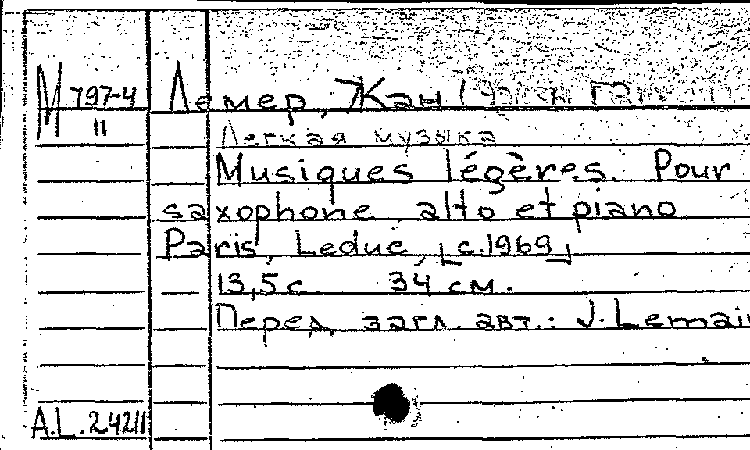 М 797-4
11
Лемер, Жан
Легкая музыка
Musiques légères. Pour
saxophone alto et piano
Paris, Leduc, [c.1969]
13,5 с. 34 см.
Перед загл. авт.: J. Lemai
A.L. 24211